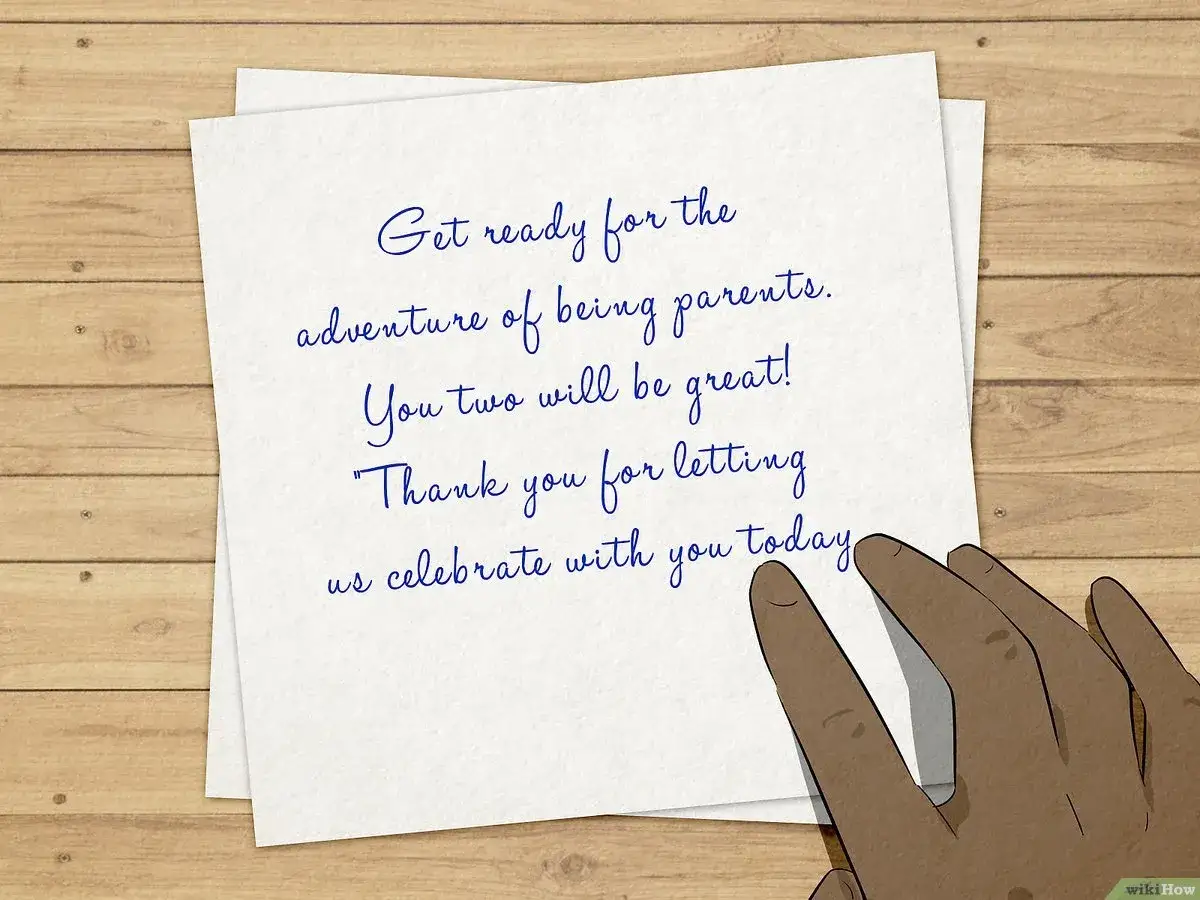 Get ready for the
adventure of being parents.
You two will be great!
"Thank you for letting
us celebrate with you today
wikiHow